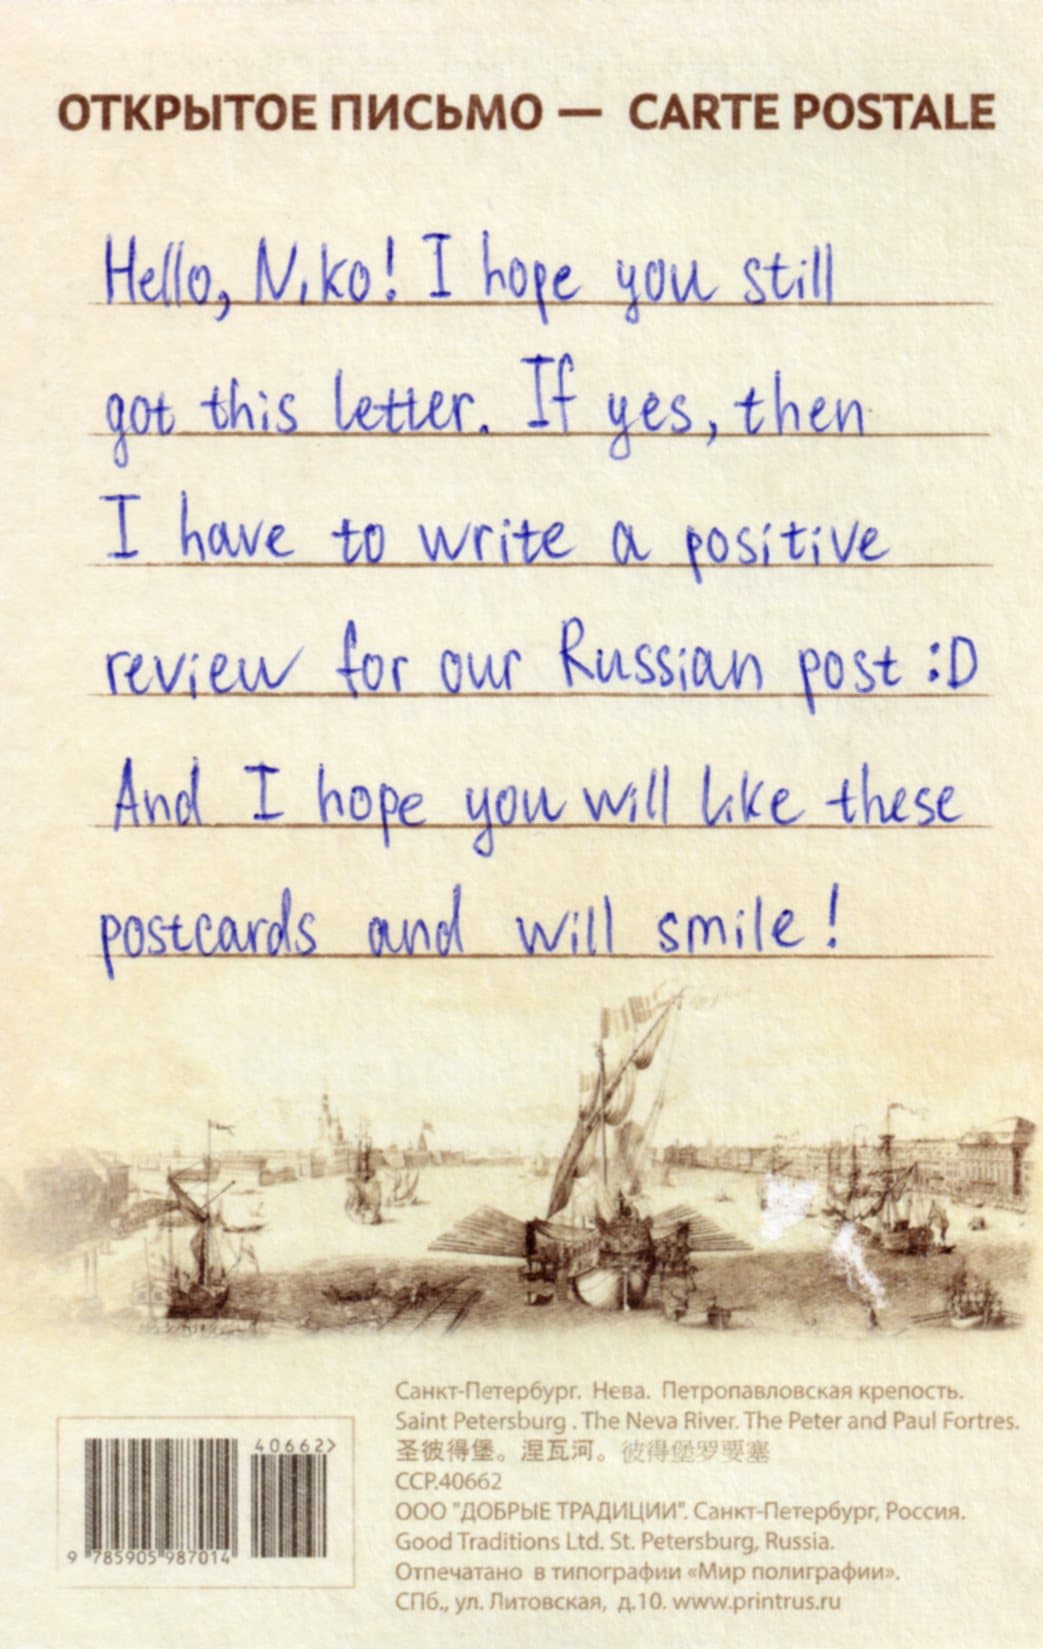 ОТКРЫТОЕ ПИСЬМО — CARTE POSTALE
Hello, Niko! I hope you still
got this letter. If yes, then
I have to write a positive
review for our Russian post :D
And I hope you will like these
postcards and will smile!
Санкт-Петербург. Нева. Петропавловская крепость.
Saint Petersburg . The Neva River. The Peter and Paul Fortres.
圣彼得堡。涅瓦河。彼得堡罗要塞
ССР.40662
ООО "ДОБРЫЕ ТРАДИЦИИ". Санкт-Петербург, Россия.
Good Traditions Ltd. St. Petersburg, Russia.
Отпечатано в типографии «Мир полиграфии».
СПб., ул. Литовская, д.10. www.printrus.ru
40662>
9 785905 987014